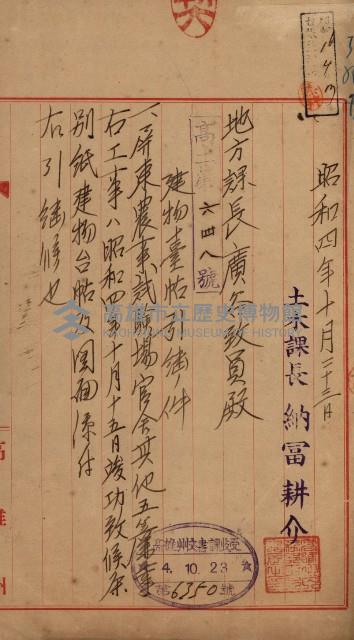 昭和四年十月二十三日
土木課長 納冨耕介
地方課長 廣谷致員殿
高土第六四八號
建物臺帖引繼ノ件
一、屏東農事試驗場官舍其他五廉工事
右工事ハ昭和四年十月十五日竣功致候條
別紙建物台帖及図面添付
右引繼候也
高雄州文書課收受
4.10.23
第6350號
高雄市立歷史博物館
KAOHSIUNG MUSEUM OF HISTORY
高雄州